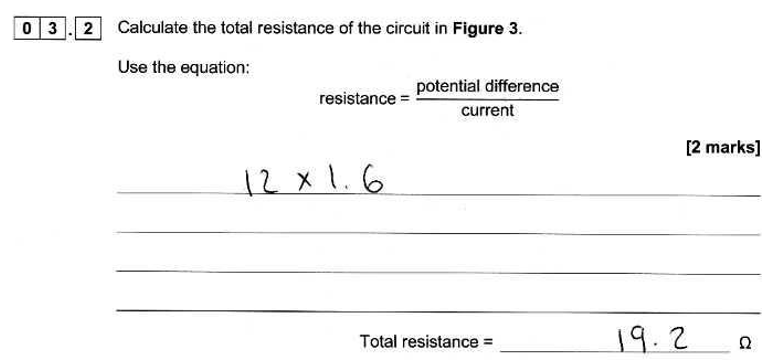 0 3 . 2 Calculate the total resistance of the circuit in Figure 3.
Use the equation:
resistance = potential difference / current
[2 marks]
12 × 1.6
Total resistance = 19.2 Ω